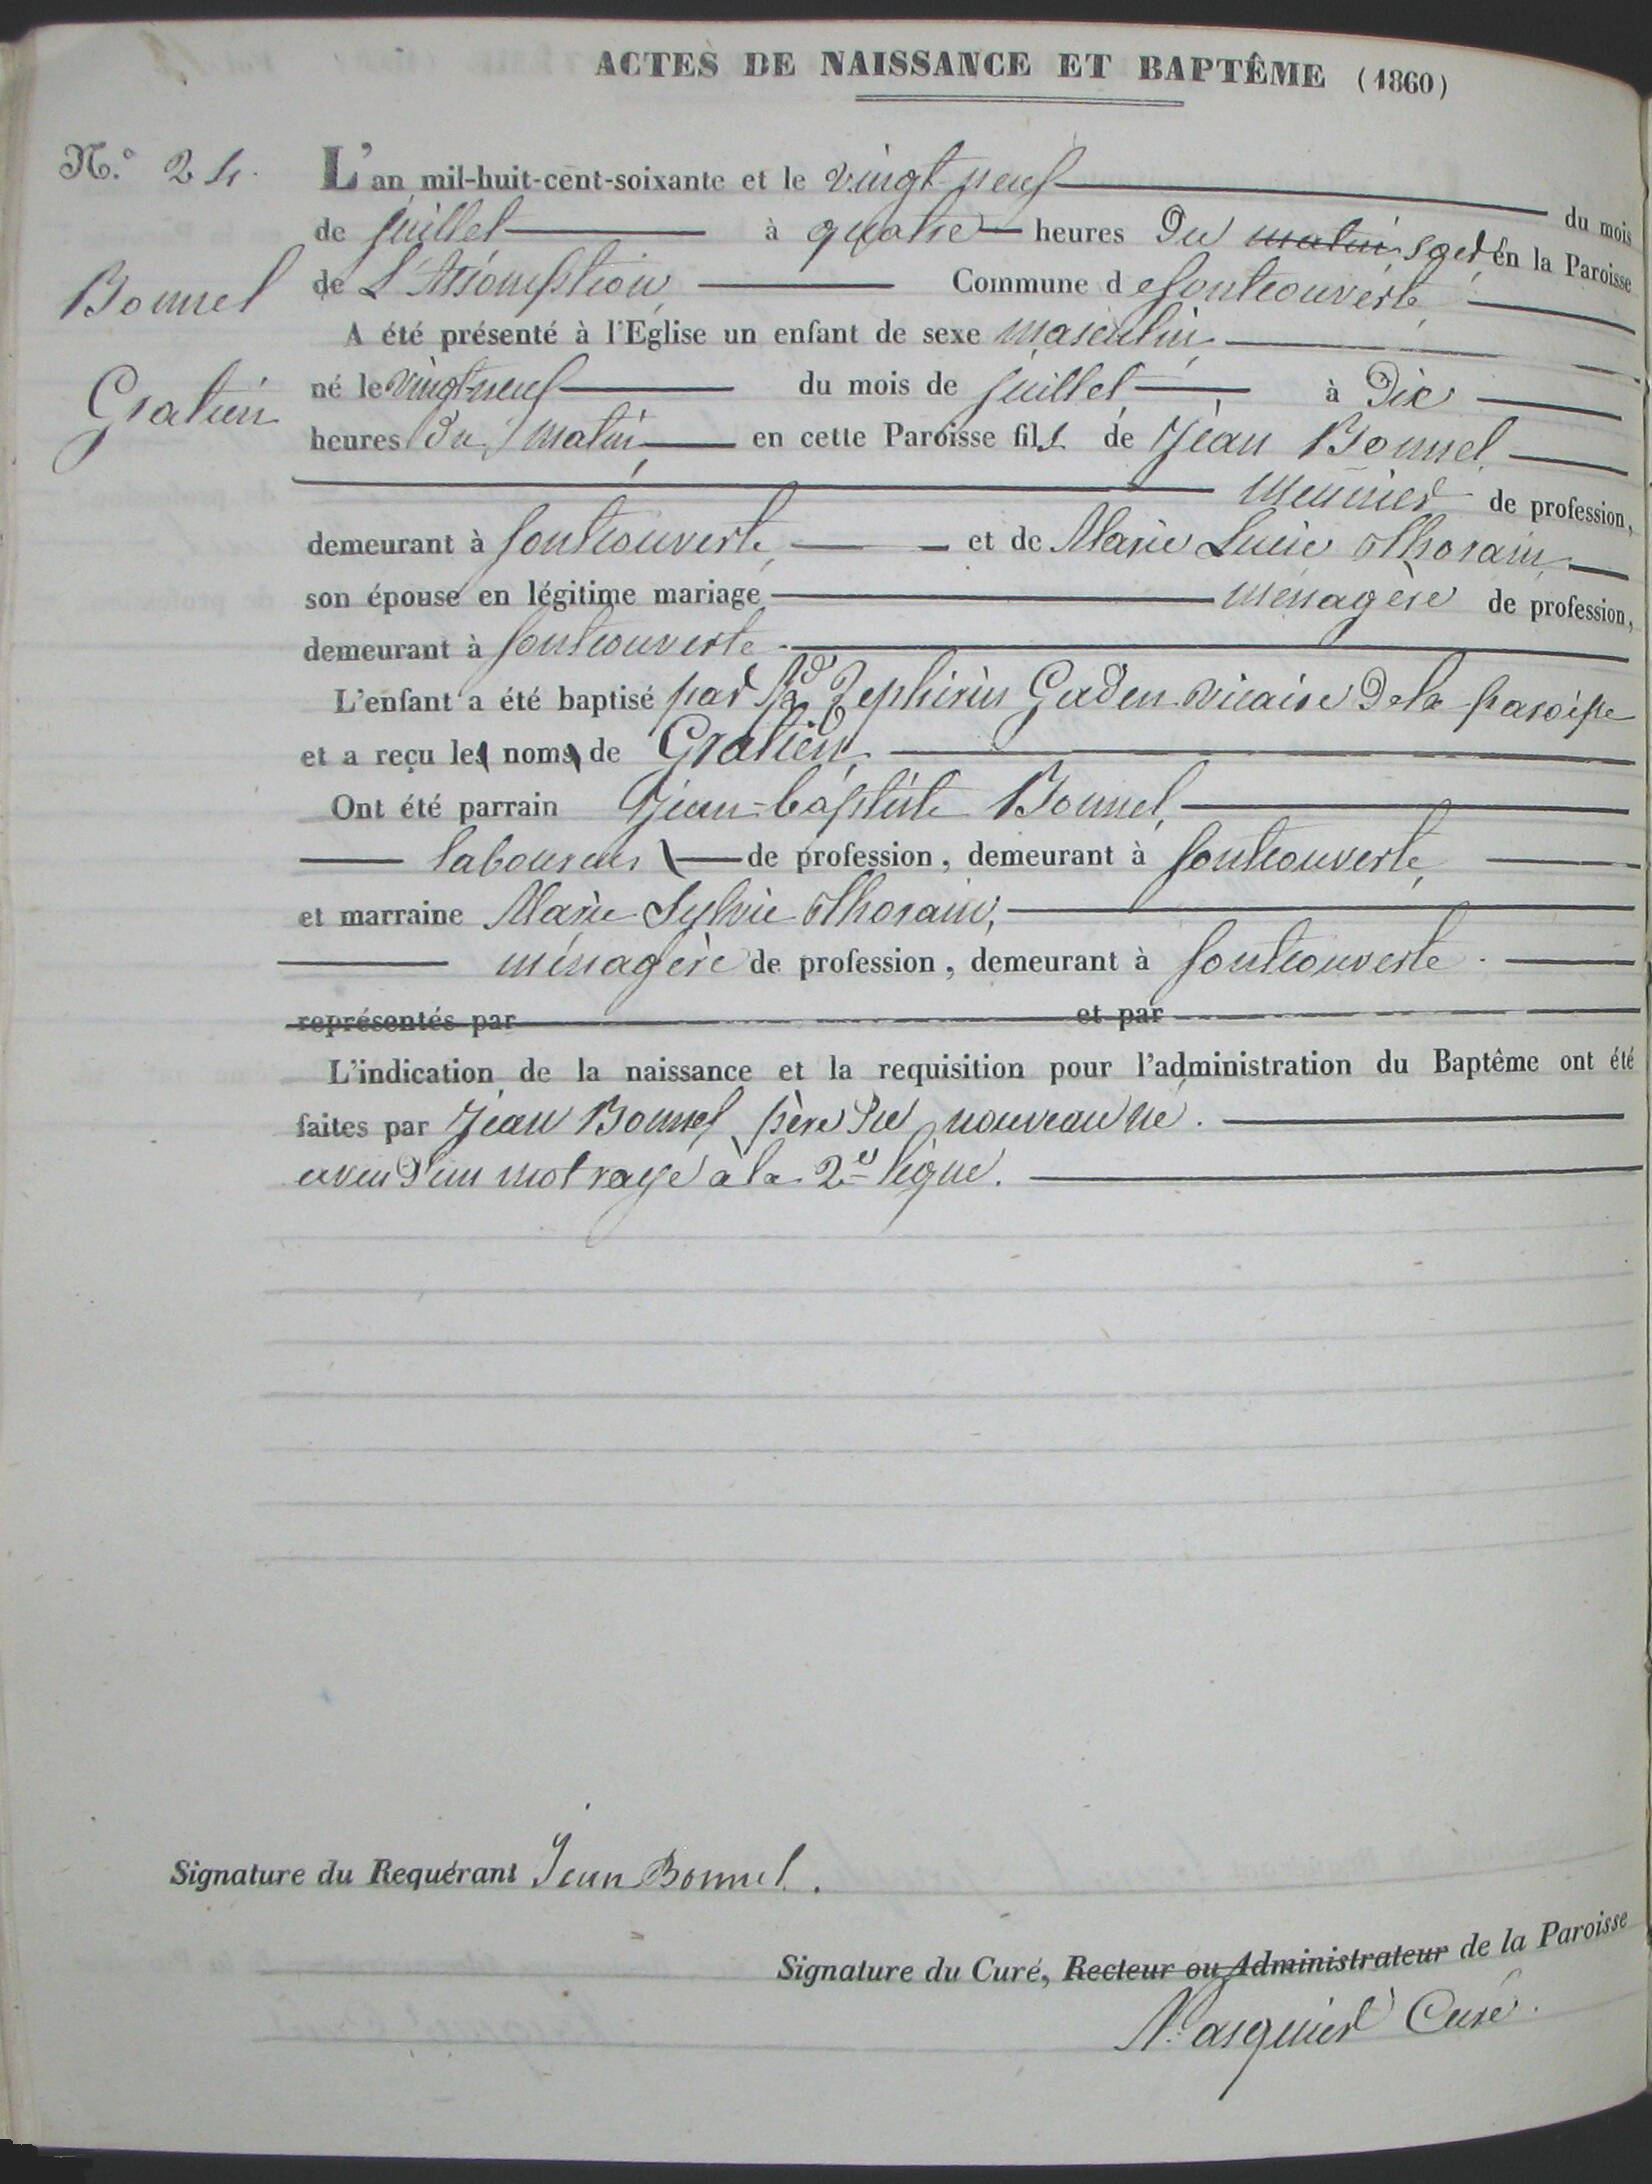 ACTES DE NAISSANCE ET BAPTÊME (1860)
N.º 24.
Bonnel
Gratien
L'an mil-huit-cent-soixante et le vingt-neuf du mois
de juillet à quatre heures du matin soir en la Paroisse
de L'Assomption, Commune de fontcouverte,
A été présenté à l'Eglise un enfant de sexe masculin
né le vingt-neuf du mois de juillet à Dix
heures du matin en cette Paroisse fils de Jean Bonnel,
meunier de profession,
demeurant à fontcouverte, et de Marie Lucie Thorain,
son épouse en légitime mariage ménagère de profession,
demeurant à fontcouverte
L'enfant a été baptisé par Zephirin Gaden vicaire de la paroisse
et a reçu les noms de Gratien,
Ont été parrain Jean-baptiste Bonnel,
laboureur de profession, demeurant à fontcouverte,
et marraine Marie Sylvie Thorain,
ménagère de profession, demeurant à fontcouverte.
représentés par et par
L'indication de la naissance et la requisition pour l'administration du Baptême ont été
faites par Jean Bonnel père du nouveau né.
aveu d'un mot rayé à la 2e ligne.
Signature du Requérant Jean Bonnel.
Signature du Curé, Recteur ou Administrateur de la Paroisse
Pasquier Curé.